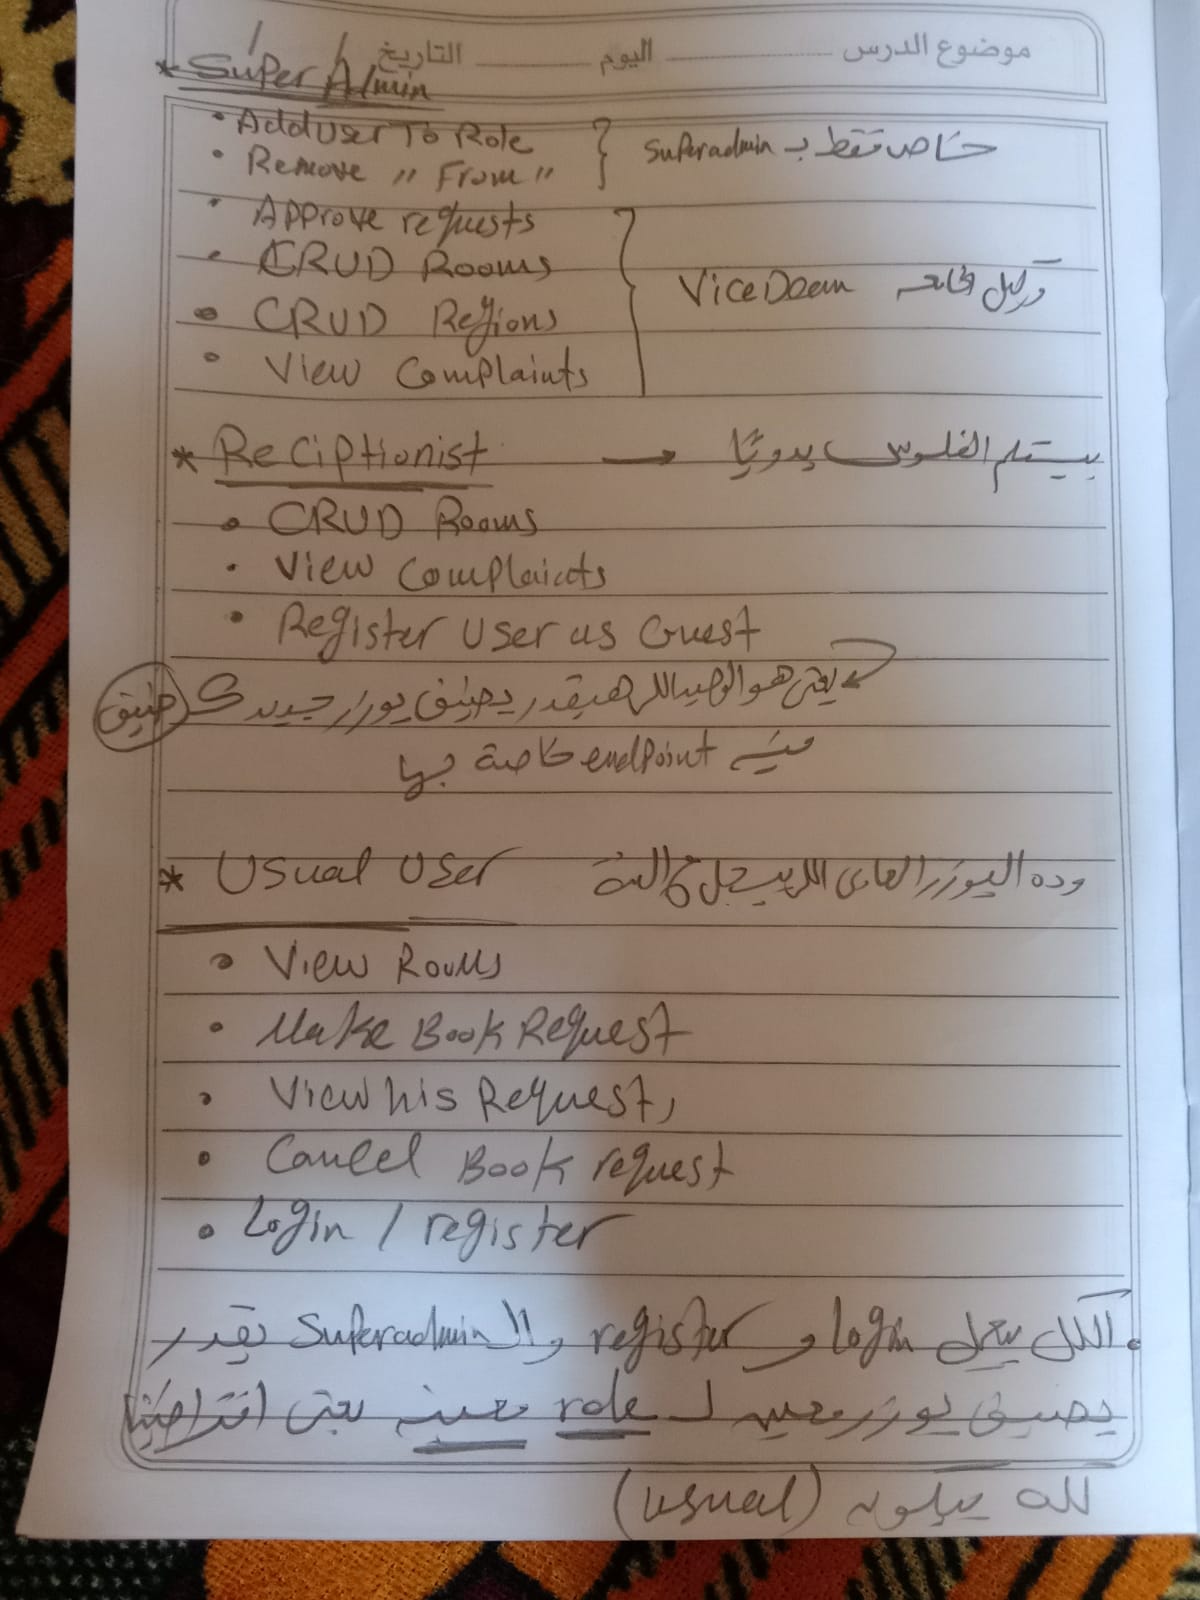 موضوع الدرس اليوم التاريخ
* Super Admin
• Add User To Role
• Remove " From "
خاص فقط بـ superadmin
• Approve requests
• CRUD Rooms
• CRUD Regions
• View Complaints
ViceDean وكيل الجامعه
* Reciptionist → بيستلم الفلوس يدويًا
• CRUD Rooms
• View Complaints
• Register User as Guest
يعنى هو الوحيد اللى هيقدر يضيف يوزر جديد كـ ضيف
فيه endpoint خاصة بيها
* Usual User وده اليوزر العادى اللى بيسجل
• View Rooms
• Make Book Request
• View his Request,
• Cancel Book request
• Login / register
• الكل بيعمل login و register والـ Superadmin يقدر
يضيف يوزر معين لـ role معينه يعنى افتراضيًا
كله بيكون (usual)